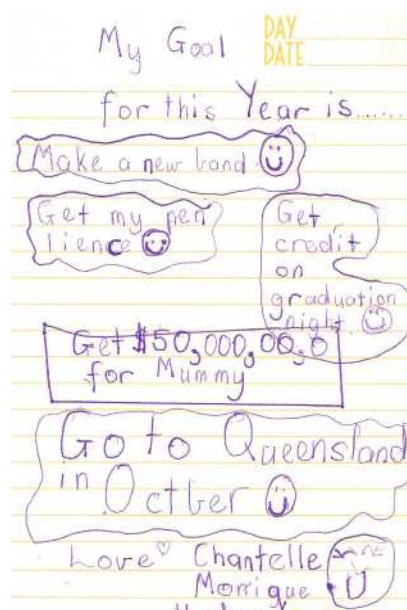 My Goal DAY
DATE
for this Year is......
Make a new band
Get my pen
lience
Get
credit
on
graduation
night.
Get $50,000,00,0
for Mummy
Go to Queensland
in Octber
Love Chantelle
Monique